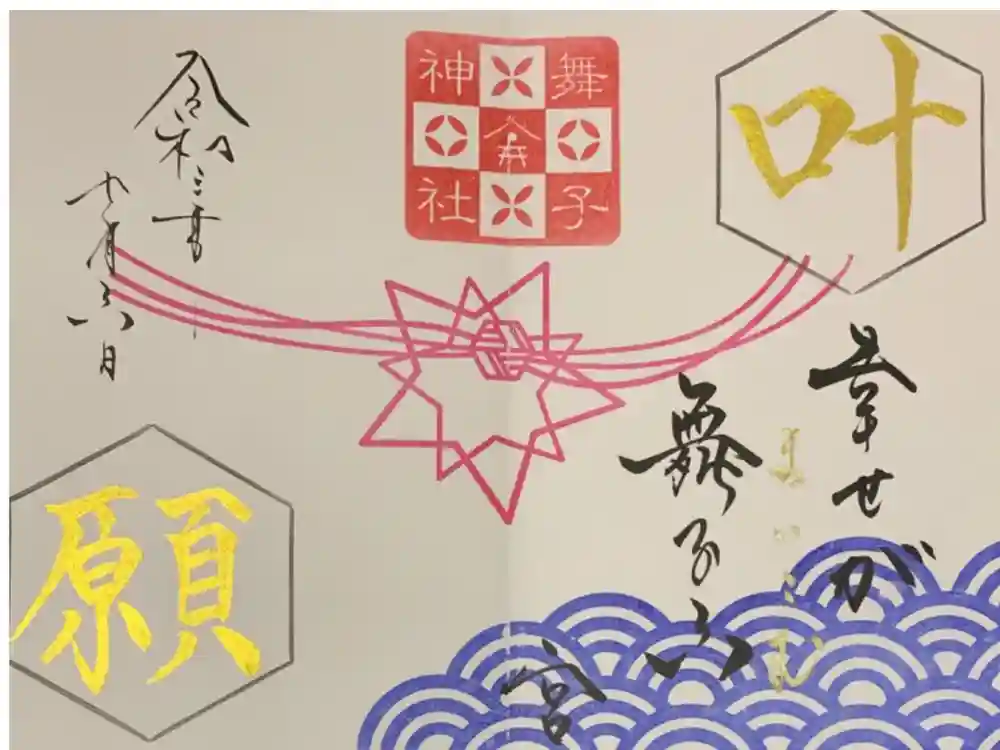 叶
舞子
神社
幸せが
まいこむ
舞子六
宮
令和三年
月六日
願